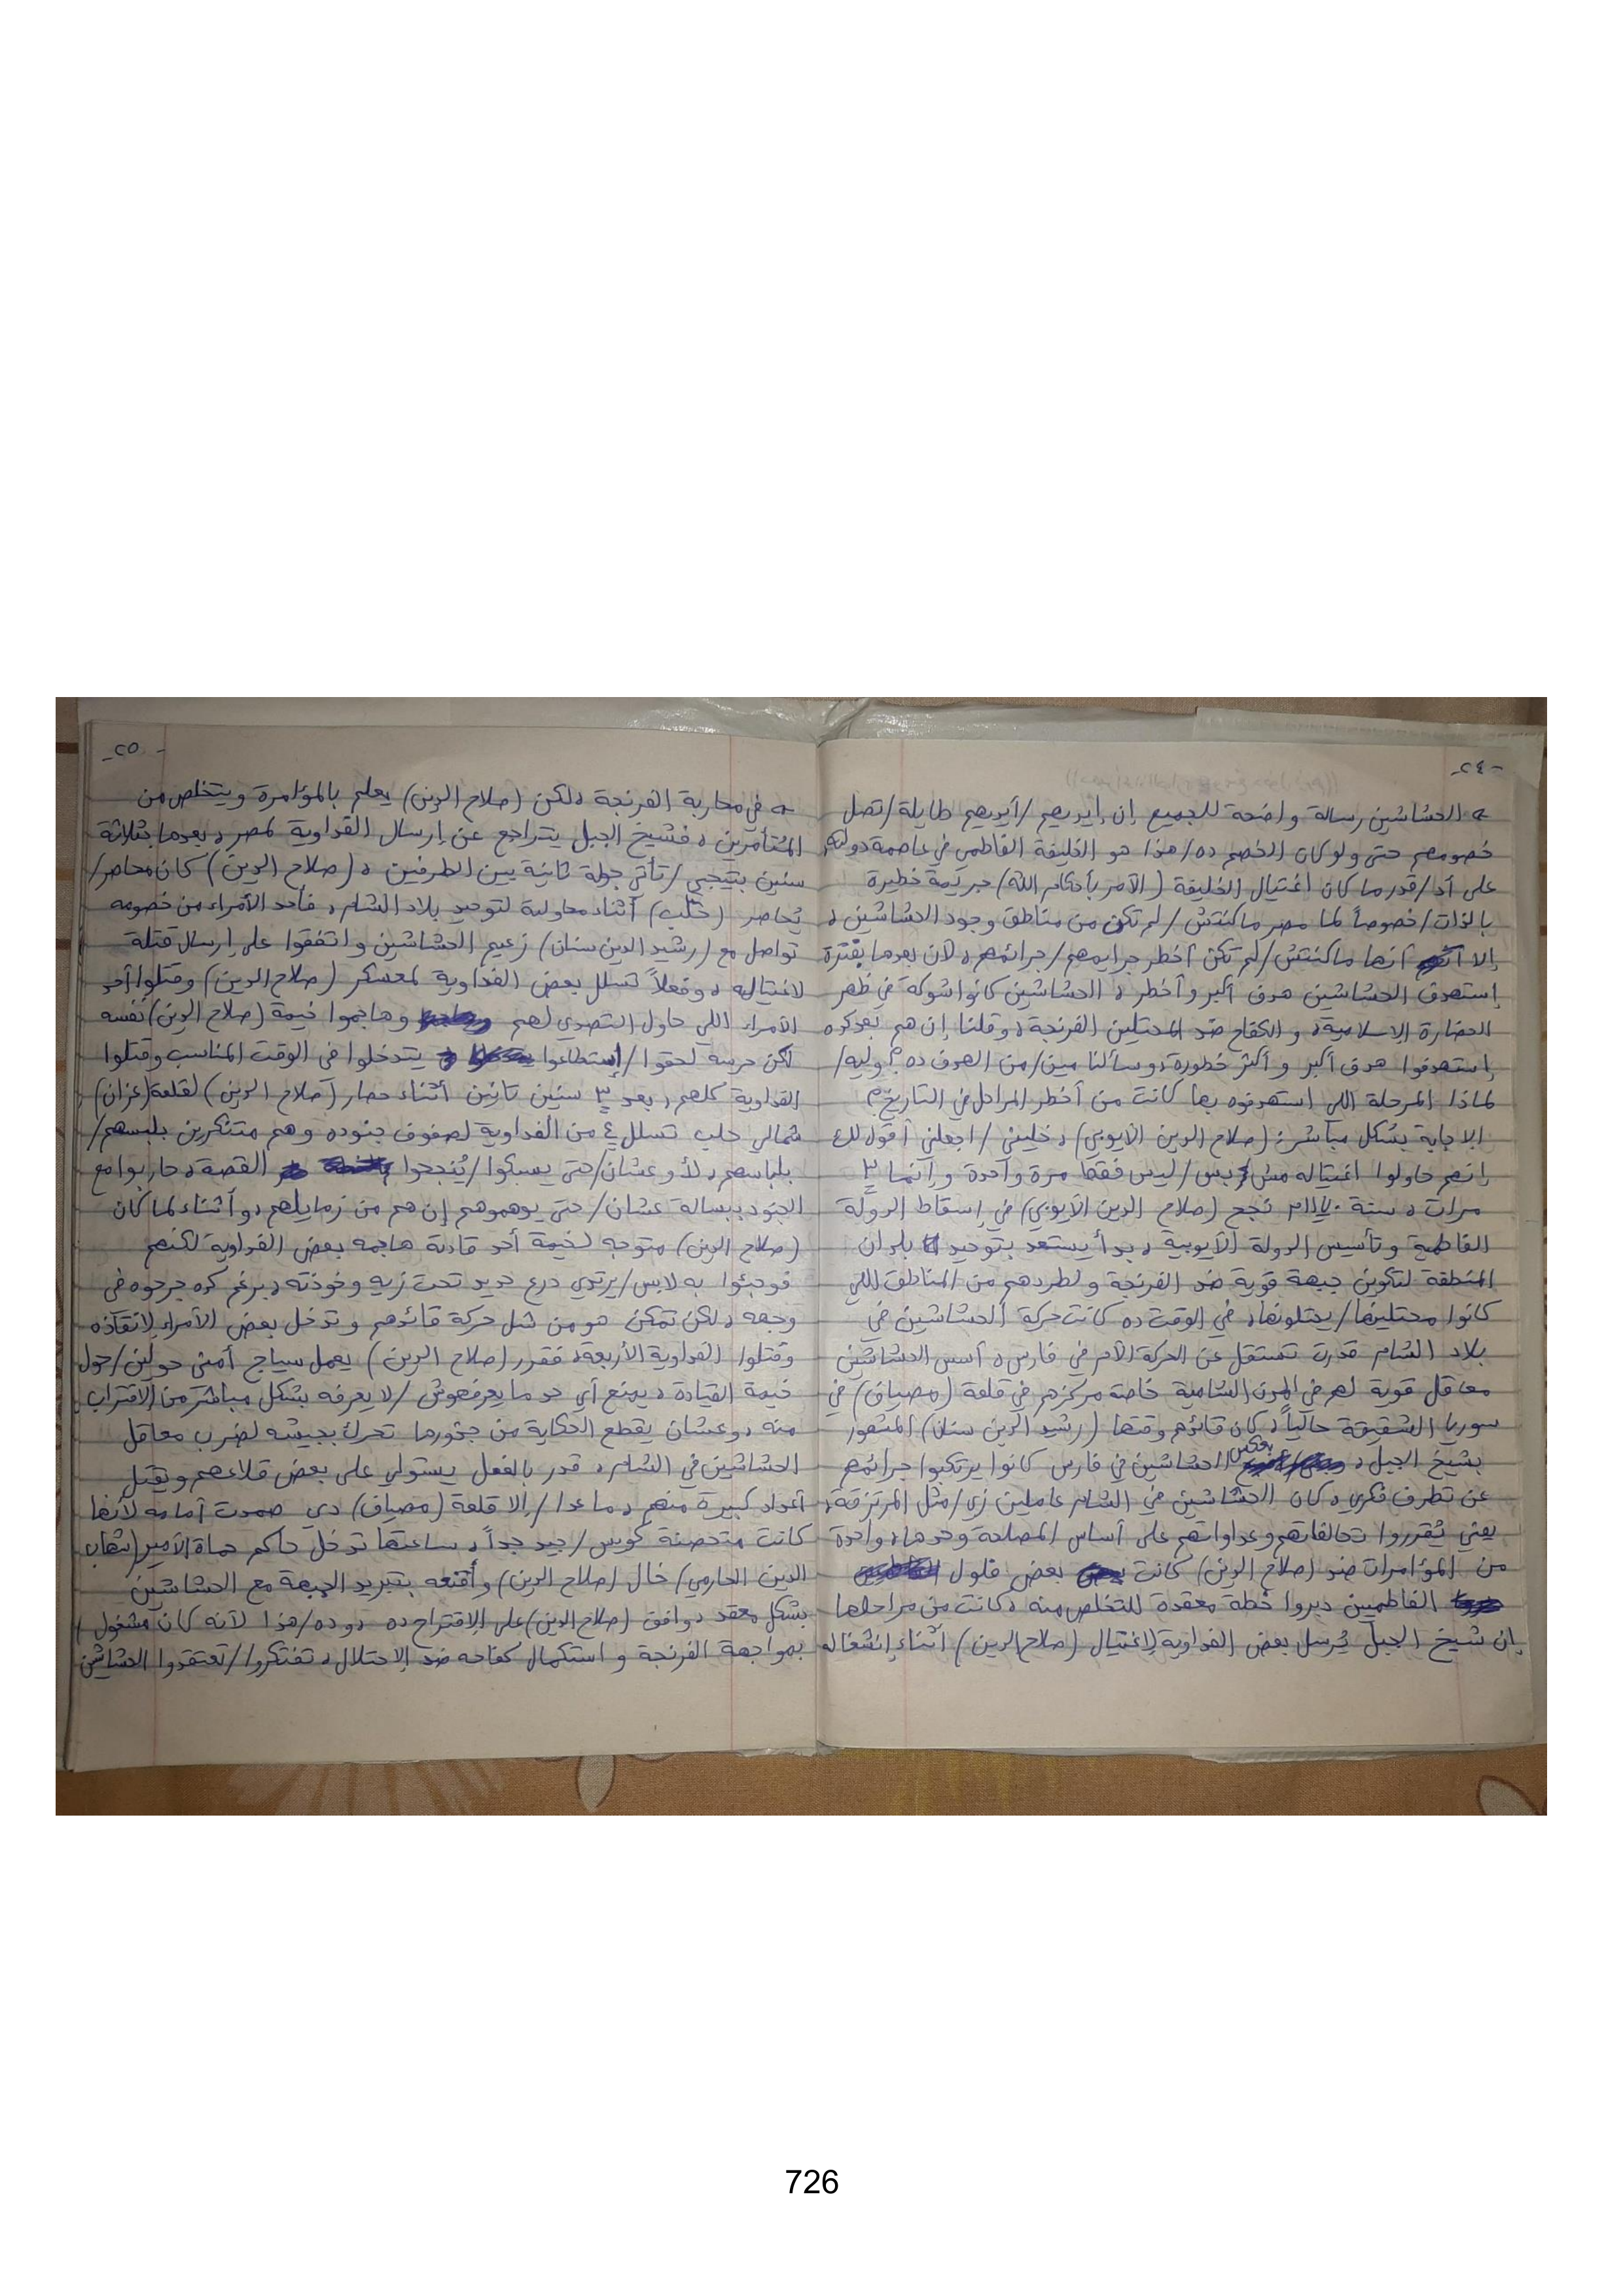 -٢٤-
← الحشاشين رسالة واضحة للجميع إن إيديهم/أيديهم طايلة/تصل
خصومهم حتى ولو كان الخصم ده/هذا هو الخليفة الفاطمي في عاصمة دولته،
على أد/قدر ما كان اغتيال الخليفة (الآمر بأحكام الله) جريمة خطيرة
بالذات/خصوصاً لما مصر ماكنتش/لم تكن من مناطق وجود الحشاشين،
إلا أنها ماكنتش/لم تكن أخطر جرايمهم/جرائمهم، لأن بعدها بفترة
إستهدف الحشاشين هدف أكبر وأخطر، الحشاشين كانوا شوكة في ظهر
الحضارة الإسلامية، والكفاح ضد المحتلين الفرنجة، وقلنا إن هم بعد كده
إستهدفوا هدف أكبر وأكثر خطورة، وسألنا مين/من الهدف ده؟ وليه/
لماذا المرحلة اللي استهدفوه بها كانت من أخطر المراحل في التاريخ؟
الإجابة بشكل مباشر: (صلاح الدين الأيوبي)، خليني/اجعلني أقول لك
إنهم حاولوا اغتياله مش بس/ليس فقط مرة واحدة وإنما ٣
مرات، سنة ١١٧٠م نجح (صلاح الدين الأيوبي) في إسقاط الدولة
الفاطمية وتأسيس الدولة الأيوبية، بدأ يستعد بتوحيد بلدان
المنطقة لتكوين جبهة قوية ضد الفرنجة ولطردهم من المناطق اللي
كانوا محتلينها/يحتلونها، في الوقت ده كانت حركة الحشاشين في
بلاد الشام قدرت تستقل عن الحركة الأم في فارس، أسس الحشاشين
معاقل قوية لهم في المدن الشامية خاصة مركزهم في قلعة (مصياف) في
سوريا الشقيقة حالياً، كان قائدهم وقتها (رشيد الدين سنان) المشهور
بشيخ الجبل، بعكس الحشاشين في فارس كانوا يرتكبوا جرائمهم
عن تطرف فكري، كان الحشاشين في الشام عاملين زي/مثل المرتزقة،
يعني يُقرروا تحالفاتهم وعداواتهم على أساس المصلحة وحدها، واحدة
من المؤامرات ضد (صلاح الدين) كانت بعض فلول
الفاطميين دبروا خطة معقدة للتخلص منه، كانت من مراحلها
إن شيخ الجبل يُرسل بعض الفداوية لإغتيال (صلاح الدين) أثناء إنشغاله
-٢٥-
← في محاربة الفرنجة، لكن (صلاح الدين) يعلم بالمؤامرة ويتخلص من
المُتأمرين، فشيخ الجبل يتراجع عن إرسال الفداوية لمصر، بعدها بثلاثة
سنين بتيجي/تأتي جولة ثانية بين الطرفين، (صلاح الدين) كان محاصر/
يُحاصر (حلب) أثناء محاولة لتوحيد بلاد الشام، فأحد الأمراء من خصومه
تواصل مع (رشيد الدين سنان) زعيم الحشاشين واتفقوا على إرسال قتلة
لاغتياله، وفعلاً تسلل بعض الفداوية لمعسكر (صلاح الدين) وقتلوا أحد
الأمراء اللي حاول التصدي لهم وهاجموا خيمة (صلاح الدين) نفسه
لكن حرسه لحقوا/إستطاعوا يتدخلوا في الوقت المناسب وقتلوا
الفداوية كلهم، بعد ٣ سنين تانين أثناء حصار (صلاح الدين) لقلعة (عزان)
شمالي حلب تسلل ٤ من الفداوية لصفوف جنوده وهم متنكرين بلبسهم/
بلباسهم، لأ وعشان/حتى يسبكوا/يُنجحوا القصة، حاربوا مع
الجنود ببسالة عشان/حتى يوهموهم إن هم من زمايلهم، وأثناء لما كان
(صلاح الدين) متوجه لخيمة أحد قادته هاجمه بعض الفداوية لكنهم
فوجئوا به لابس/يرتدي درع حديد تحت زيه وخوذته، برغم كده جرحوه في
وجهه، لكن تمكن هو من شل حركة قائدهم وتدخل بعض الأمراء لإنقاذه
وقتلوا الفداوية الأربعة، فقرر (صلاح الدين) يعمل سياج أمني حولين/حول
خيمة القيادة، يمنع أي حد ما يعرفهوش/لا يعرفه بشكل مباشر من الإقتراب
منه، وعشان يقطع الحكاية من جذورها تحرك بجيشه لضرب معاقل
الحشاشين في الشام، قدر بالفعل يستولي على بعض قلاعهم ويقتل
أعداد كبيرة منهم، ما عدا/إلا قلعة (مصياف) دي صمدت أمامه لأنها
كانت متحصنة كويس/جيد جداً، ساعتها تدخل حاكم حماة الأمير (شهاب
الدين الحارمي) خال (صلاح الدين) وأقنعه بتبريد الجبهة مع الحشاشين
بشكل معقد، وافق (صلاح الدين) على الإقتراح ده، وده/هذا لأنه كان مشغول
بمواجهة الفرنجة واستكمال كفاحه ضد الإحتلال، تفتكروا/تعتقدوا الحشاشين
726